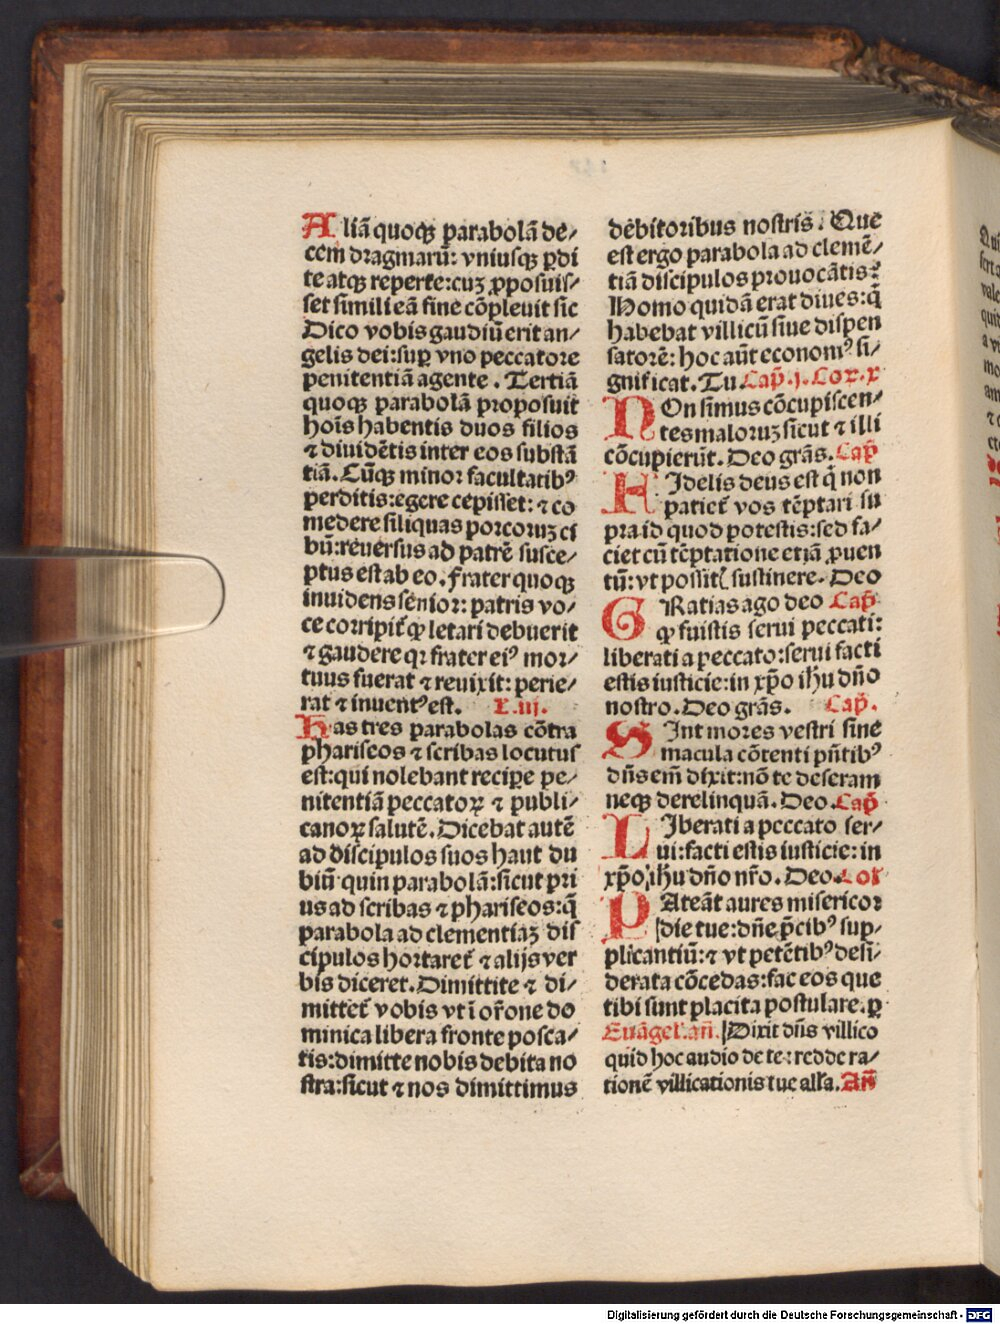 Aliã quoqꝫ parabolã de⸗
cem dragmarũ: vniusqꝫ ꝑdi
te atqꝫ reperte: cuꝫ ꝓposuis⸗
set simili eã fine cõpleuit sic
Dico vobis gaudiũ erit an⸗
gelis dei: suꝑ vno peccatore
penitentiã agente. Tertiã
quoqꝫ parabolã proposuit
hoĩs habentis duos filios
⁊ diuidẽtis inter eos substã
tiã. Cũqꝫ minor facultatibꝰ
perditis: egere cepisset: ⁊ co
medere siliquas porcoruꝫ ci
bũ: reuersus ad patrẽ susce⸗
ptus est ab eo. frater quoqꝫ
inuidens senior: patris vo⸗
ce corripit̃ ꝙ letari debuerit
⁊ gaudere qꝛ frater eiꝰ mor⸗
tuus fuerat ⁊ reuixit: perie⸗
rat ⁊ inuentꝰ est. L. iij.
Has tres parabolas cõtra
phariseos ⁊ scribas locutus
est: qui nolebant recipe pe⸗
nitentiã peccatoꝝ ⁊ publi⸗
canoꝝ salutẽ. Dicebat autẽ
ad discipulos suos haut du
biũ quin parabolã: sicut pri
us ad scribas ⁊ phariseos: q̃
parabola ad clementiaꝫ dis
cipulos hortaret̃ ⁊ alijs ver
bis diceret. Dimittite ⁊ di⸗
mittet̃ vobis vt ĩ or̃one do
minica libera fronte posca⸗
tis: dimitte nobis debita no
stra: sicut ⁊ nos dimittimus
debitoribus nostris. Que
est ergo parabola ad clemẽ⸗
tiã discipulos prouocãtis?
Homo quidã erat diues: q̃
habebat villicũ siue dispen
satorẽ: hoc aũt economꝰ si⸗
gnificat. Tu. Cap̃. j. Cor. x
NOn simus cõcupiscen⸗
tes maloruꝫ sicut ⁊ illi
cõcupierũt. Deo grãs. Cap̃
FIdelis deus est q̃ non
patiet̃ vos tẽptari su
pra id quod potestis: sed fa⸗
ciet cũ tẽptatione etiã ꝓuen
tũ: vt possitꝭ sustinere. Deo
GRatias ago deo Cap̃
ꝙ fuistis serui peccati:
liberati a peccato: serui facti
estis iusticie: in xp̃o ihũ dño
nostro. Deo grãs. Cap̃.
SInt mores vestri sine
macula cõtenti pñtibꝰ
dñs em̃ dixit: nõ te deseram
neqꝫ derelinquã. Deo. Cap̃
LIberati a peccato ser⸗
ui: facti estis iusticie: in
xp̃o ihũ dño nr̃o. Deo. Col
PAteãt aures misericor
die tue: dñe p̃cibꝰ sup⸗
plicantiũ: ⁊ vt petẽtibꝰ desi⸗
derata cõcedas: fac eos que
tibi sunt placita postulare. ꝑ
Euãgel'. añ. Dixit dñs villico
quid hoc audio de te: redde ra⸗
tionẽ villicationis tue alľa. Añ
Digitalisierung gefördert durch die Deutsche Forschungsgemeinschaft - DFG